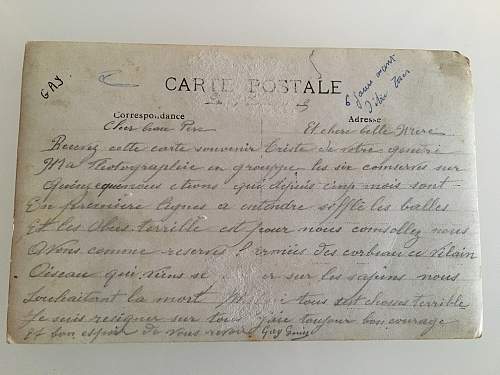 GAY.
6 jours mont
CARTE POSTALE
Correspondance
Adresse
Cher beau Père Et chere belle Mere
Recevez cette carte souvenir triste de votre gendre
Ma Photographie en grouppe les six conserves sur
quinze que nous etions que depuis cinq mois sont
En première lignes a entendre siffle les balles
Et les Obus terrible est pour nous consollez nous
Avons comme reserves l'Armées des corbeau ce vilain
Oiseau qui viens se er sur les sapins nous
Souhaitant la mort tous set choses terrible
Je suis resigner sur tou toujour bon courage
et bon espoir de vous revoir Gay